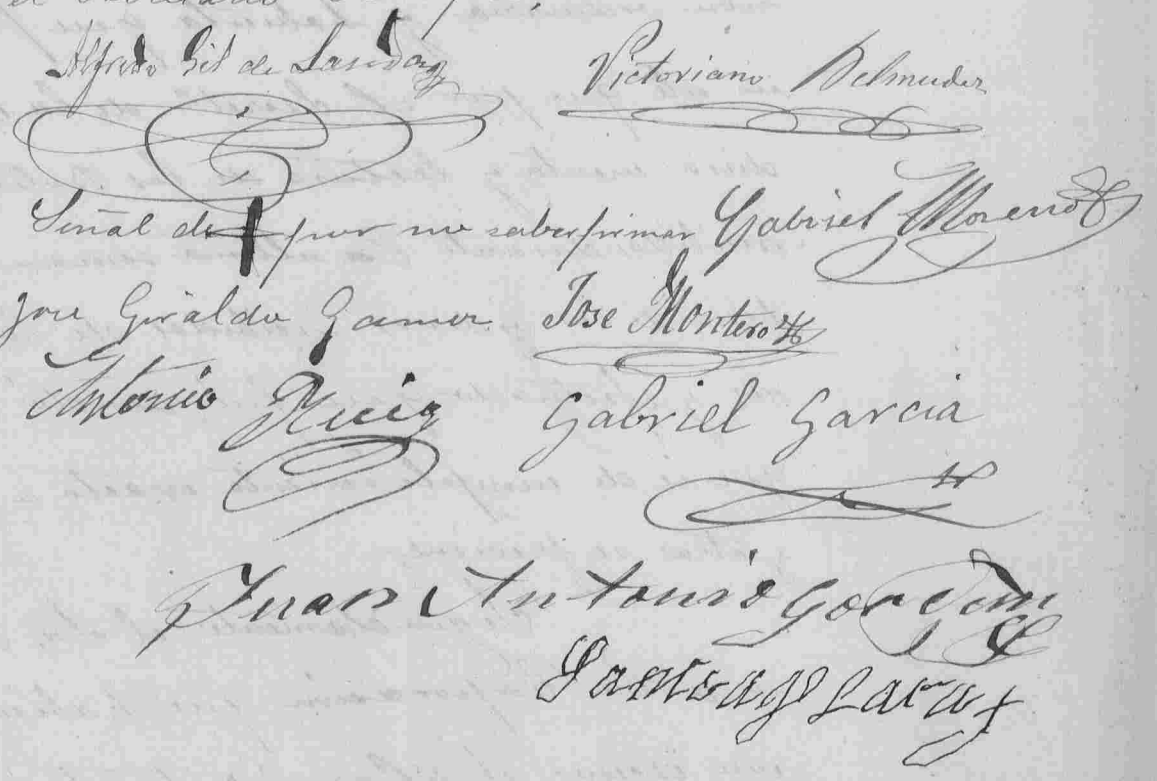 Alfredo Gil de
Victoriano Belmudes
Señal de + por no saber firmar Gabriel Moreno
Jose Giraldo Jose Montero
Antonio Ruiz Gabriel Garcia
Juan Antonio
Santiago Lara